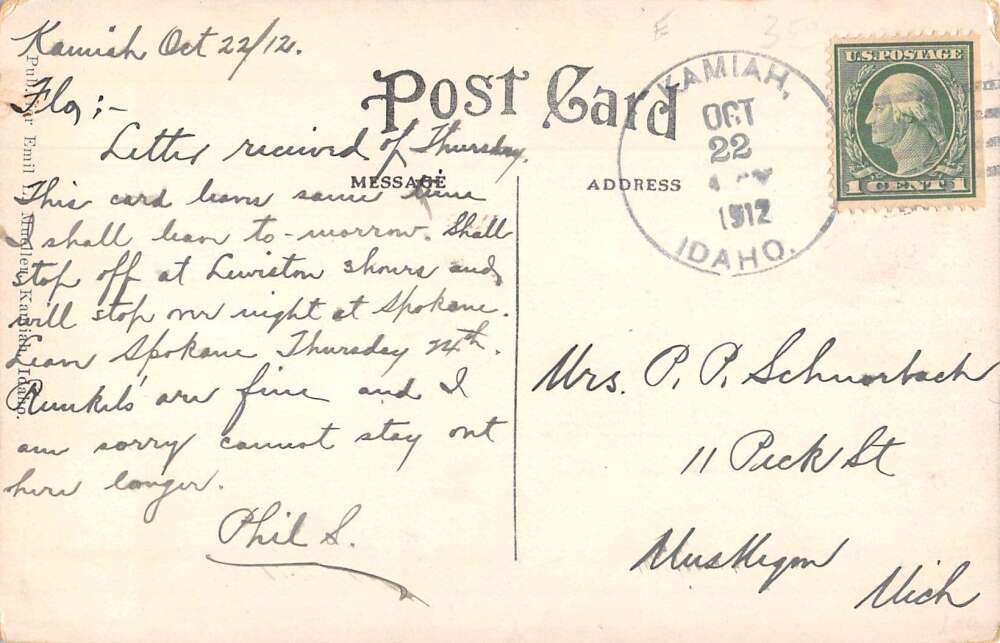 Kamiah Oct 22/12.
Flo;-
Letter received of Thursday.
This card leaves same time
I shall leave to-morrow. Shall
stop off at Lewiston 3 hours and
will stop over night at Spokane.
Leave Spokane Thursday 24th.
are fine and I
am sorry cannot stay out
here longer.
Phil S.
Post Card
MESSAGE
ADDRESS
KAMIAH,
OCT
22
1912
IDAHO.
U.S. POSTAGE
1 CENT 1
Mrs. P. P. Schnorbach
11 Peck St
Muskegon
Mich
Pub. for Emil L. Mueller, Kamiah, Idaho.